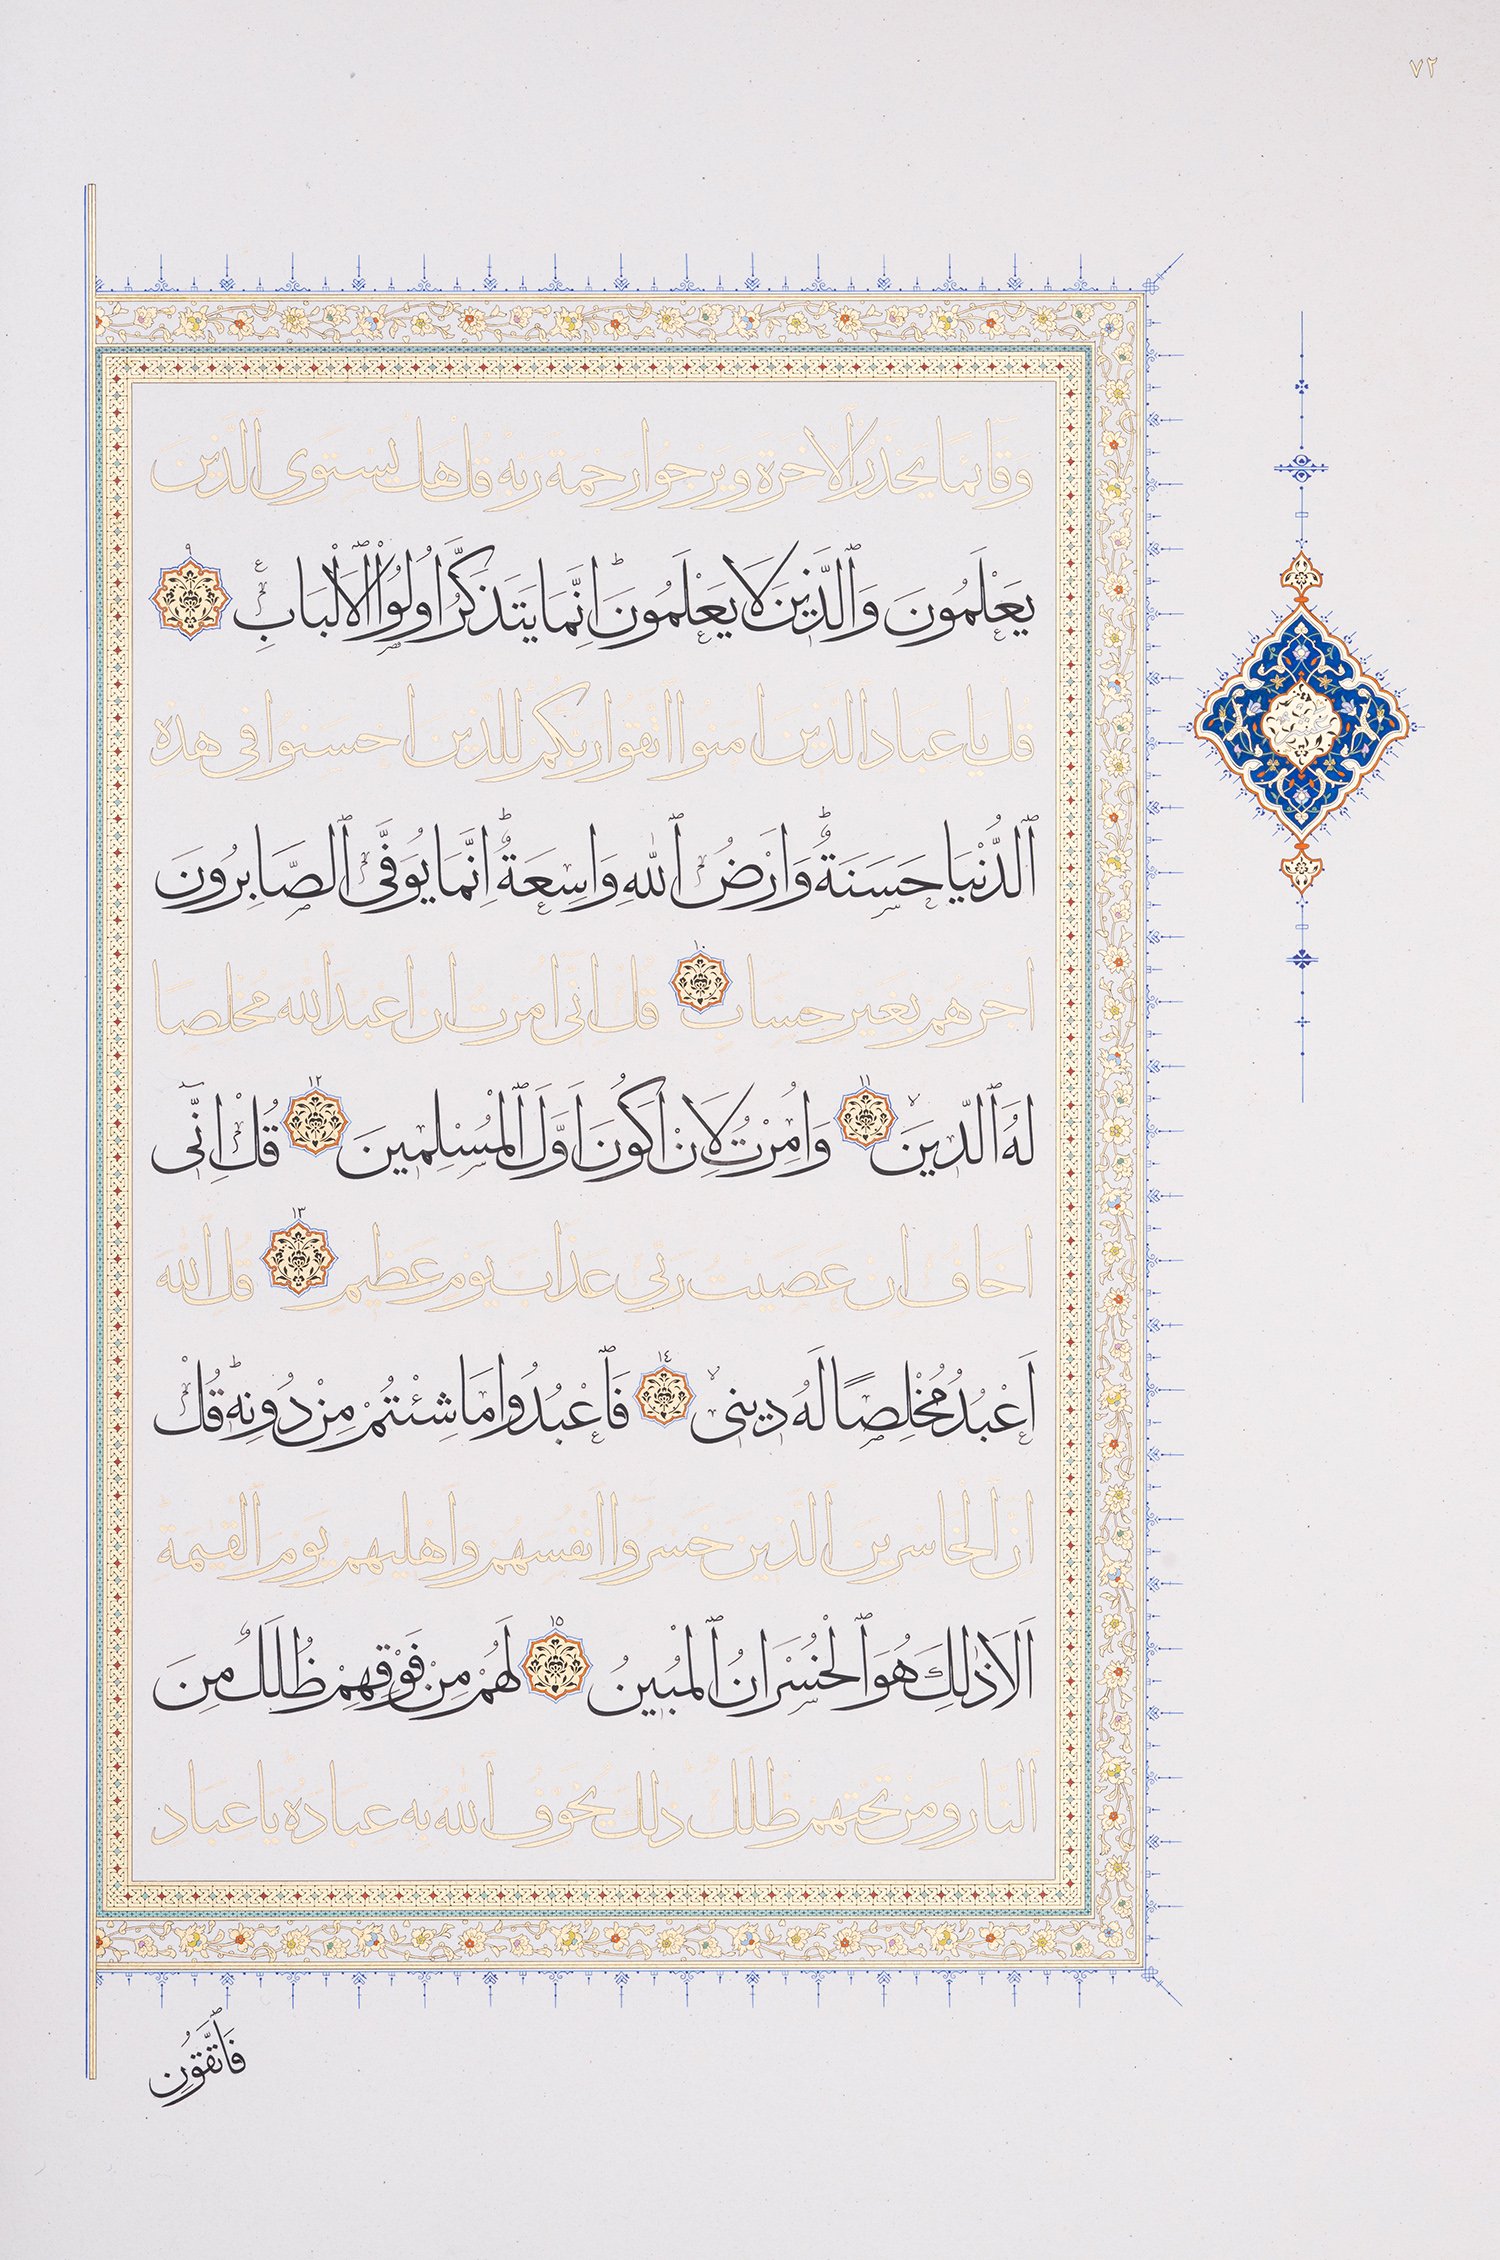 ٧٢
وَقَآئِمًا يَحْذَرُ الْاٰخِرَةَ وَيَرْجُوا رَحْمَةَ رَبِّهٖ قُلْ هَلْ يَسْتَوِى الَّذٖينَ
يَعْلَمُونَ وَالَّذٖينَ لَا يَعْلَمُونَ اِنَّمَا يَتَذَكَّرُ اُولُوا الْاَلْبَابِ ٩
قُلْ يَا عِبَادِ الَّذٖينَ اٰمَنُوا اتَّقُوا رَبَّكُمْ لِلَّذٖينَ اَحْسَنُوا فٖى هٰذِهِ
الدُّنْيَا حَسَنَةٌ وَاَرْضُ اللّٰهِ وَاسِعَةٌ اِنَّمَا يُوَفَّى الصَّابِرُونَ
اَجْرَهُمْ بِغَيْرِ حِسَابٍ ١٠ قُلْ اِنّٖى اُمِرْتُ اَنْ اَعْبُدَ اللّٰهَ مُخْلِصًا
لَهُ الدّٖينَ ١١ وَاُمِرْتُ لِاَنْ اَكُونَ اَوَّلَ الْمُسْلِمٖينَ ١٢ قُلْ اِنّٖٓى
اَخَافُ اِنْ عَصَيْتُ رَبّٖى عَذَابَ يَوْمٍ عَظٖيمٍ ١٣ قُلِ اللّٰهَ
اَعْبُدُ مُخْلِصًا لَهُ دٖينٖى ١٤ فَاعْبُدُوا مَا شِئْتُمْ مِنْ دُونِهٖ قُلْ
اِنَّ الْخَاسِرٖينَ الَّذٖينَ خَسِرُوا اَنْفُسَهُمْ وَاَهْلٖيهِمْ يَوْمَ الْقِيٰمَةِ
اَلَا ذٰلِكَ هُوَ الْخُسْرَانُ الْمُبٖينُ ١٥ لَهُمْ مِنْ فَوْقِهِمْ ظُلَلٌ مِنَ
النَّارِ وَمِنْ تَحْتِهِمْ ظُلَلٌ ذٰلِكَ يُخَوِّفُ اللّٰهُ بِهٖ عِبَادَهُ يَا عِبَادِ
فَاتَّقُونِ